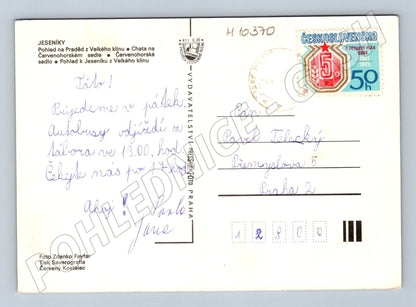 JESENÍKY
Pohled na Praděd z Velkého klínu • Chata na
Červenohorském sedle • Červenohorské
sedlo • Pohled k Jeseníku z Velkého klínu
Táto!
Přijedeme v pátek.
Autobusy odjíždí z
tábora ve 13.00 hod.
Čekejte nás po 17 hod.
Ahoj!
Jana
Foto Zdenko Feyfar
Tisk Severografia
Červený Kostelec
VYDAVATELSTVÍ PRAHA
M 10370
ČESKOSLOVENSKO
5
50h
Pan
Pavel
Přemyslova 5
Praha 2
1 2 8 0 0
POHLEDNICE